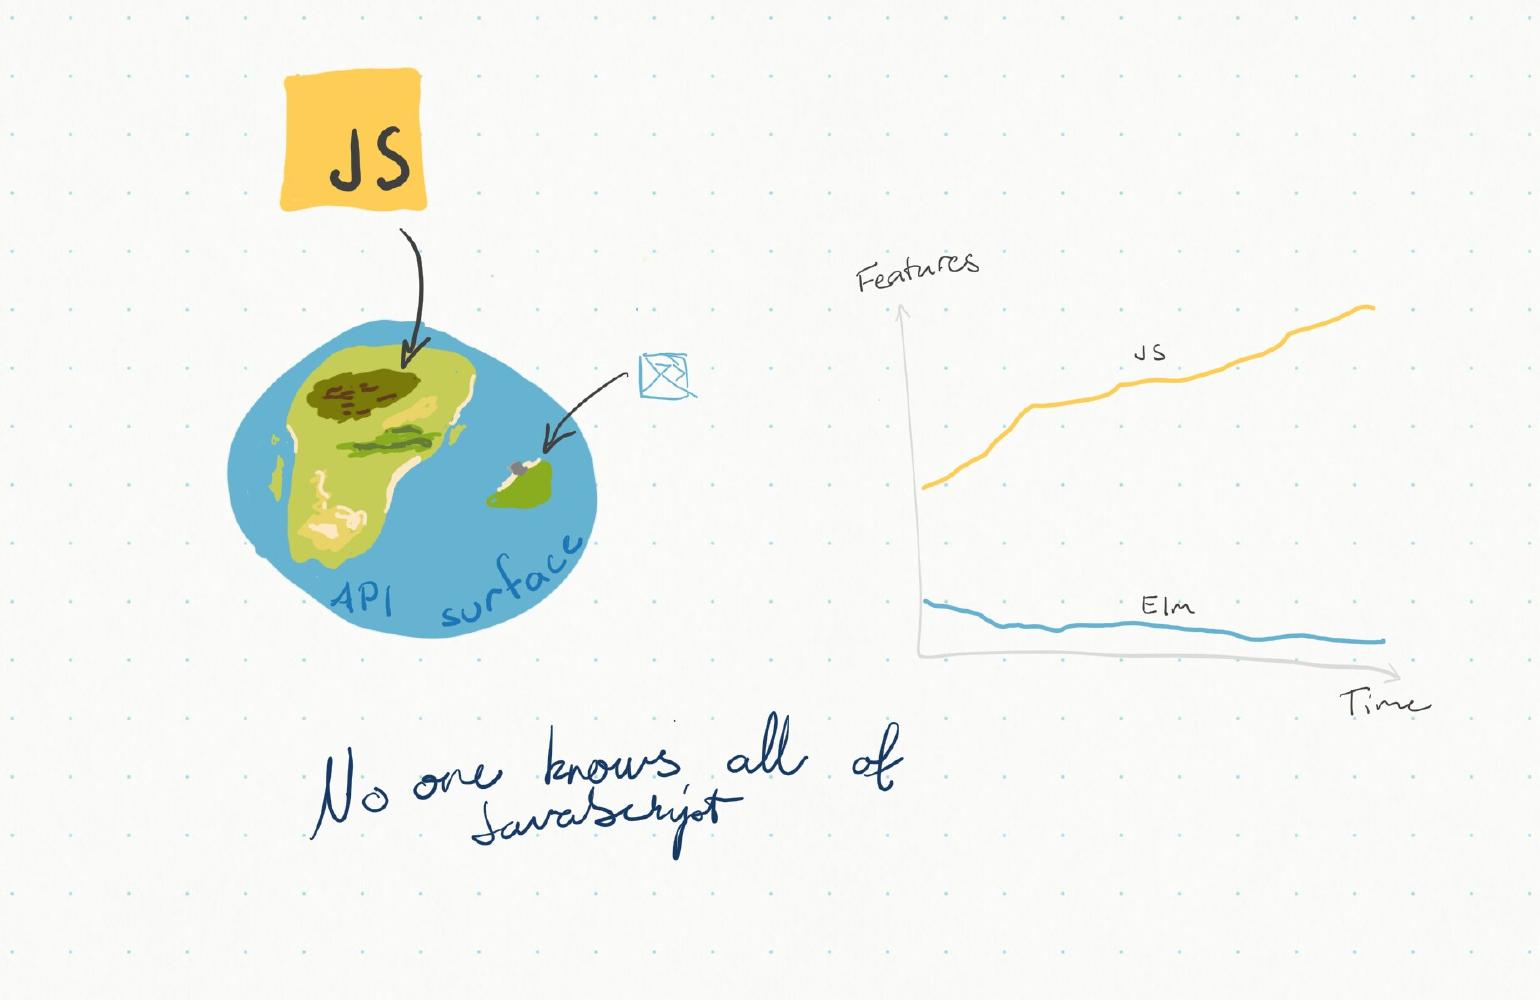 JS
API surface
Features
JS
Elm
Time
No one knows all of
JavaScript